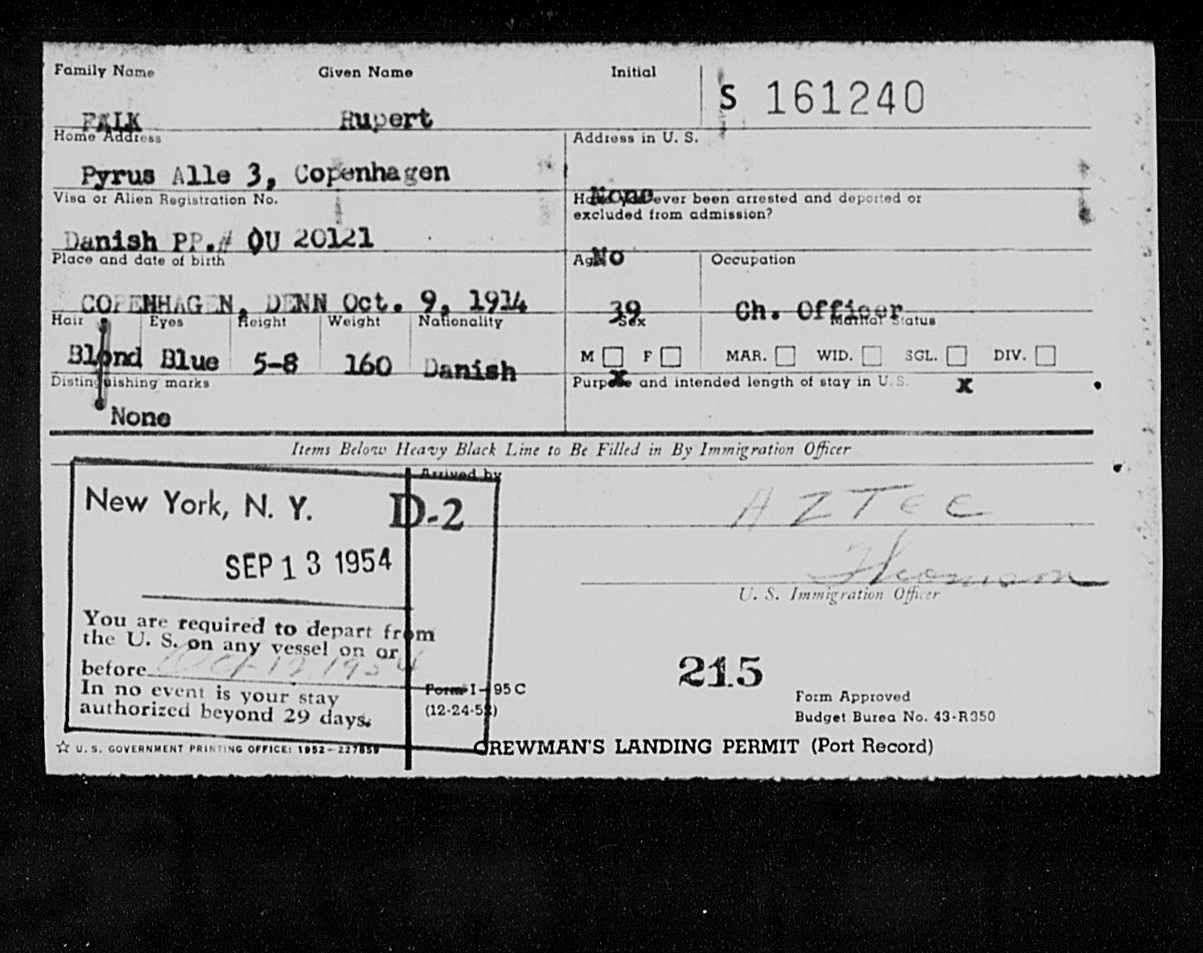 Family Name Given Name Initial
S 161240
FALK Rupert
Home Address Address in U. S.
Pyrus Alle 3, Copenhagen None
Visa or Alien Registration No. Have you ever been arrested and deported or
excluded from admission?
Danish PP.# OU 20121 No
Place and date of birth Age Occupation
COPENHAGEN, DENN Oct. 9, 1914 39 Ch. Officer
Hair Eyes Height Weight Nationality Sex Marital Status
Blond Blue 5-8 160 Danish M F MAR. WID. SGL. DIV.
x x
Distinguishing marks Purpose and intended length of stay in U.S.
None
Items Below Heavy Black Line to Be Filled in By Immigration Officer
Arrived by
New York, N. Y. D-2 AZTEC
SEP 13 1954
Thomson
U. S. Immigration Officer
You are required to depart from
the U. S. on any vessel on or
before Oct 12 1954
In no event is your stay
authorized beyond 29 days.
Form I-95C
(12-24-52)
215
Form Approved
Budget Burea No. 43-R350
☆ U. S. GOVERNMENT PRINTING OFFICE: 1952-227859
CREWMAN'S LANDING PERMIT (Port Record)